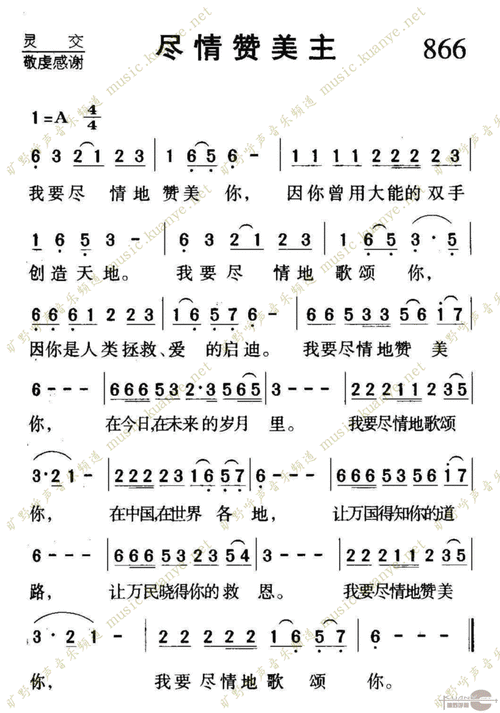 灵 交
敬虔感谢
尽情赞美主
866
1=A 4/4
6 3 2 1 2 3 | 1 6 5 6 - | 1 1 1 1 2 2 2 2 2 3 |
我要尽 情地 赞美 你， 因你曾用大能的 双手
1 6 5 3 - | 6 3 2 1 2 3 | 1 6 5 3 · 5 |
创造天地。 我要尽 情地歌颂 你，
6 6 6 6 1 2 2 3 | 1 6 5 7 6 - | 0 3 3 3 5 5 5 6 1 7 |
因你是人类拯救、爱 的启迪。 我要尽情地赞 美
6 - - - | 6 6 6 5 3 2 · 3 5 6 5 | 3 - - - | 2 2 2 1 1 2 3 5 |
你， 在今日,在未来的岁月 里。 我要尽情地歌颂
3 · 2 1 - | 2 2 2 2 3 1 6 5 7 | 6 - - - | 6 6 6 5 3 5 6 1 7 |
你， 在中国,在世界 各 地， 让万国得知你的道
6 - - - | 6 6 6 5 3 2 3 2 5 4 | 3 - - - | 2 2 2 1 1 2 3 5 |
路， 让万民晓得你的 救 恩。 我要尽情地赞美
3 · 2 1 - | 2 2 2 2 1 6 5 7 | 6 - - - |
你， 我要 尽情地 歌 颂 你。
旷野呼声音乐频道 music.kuanye.net